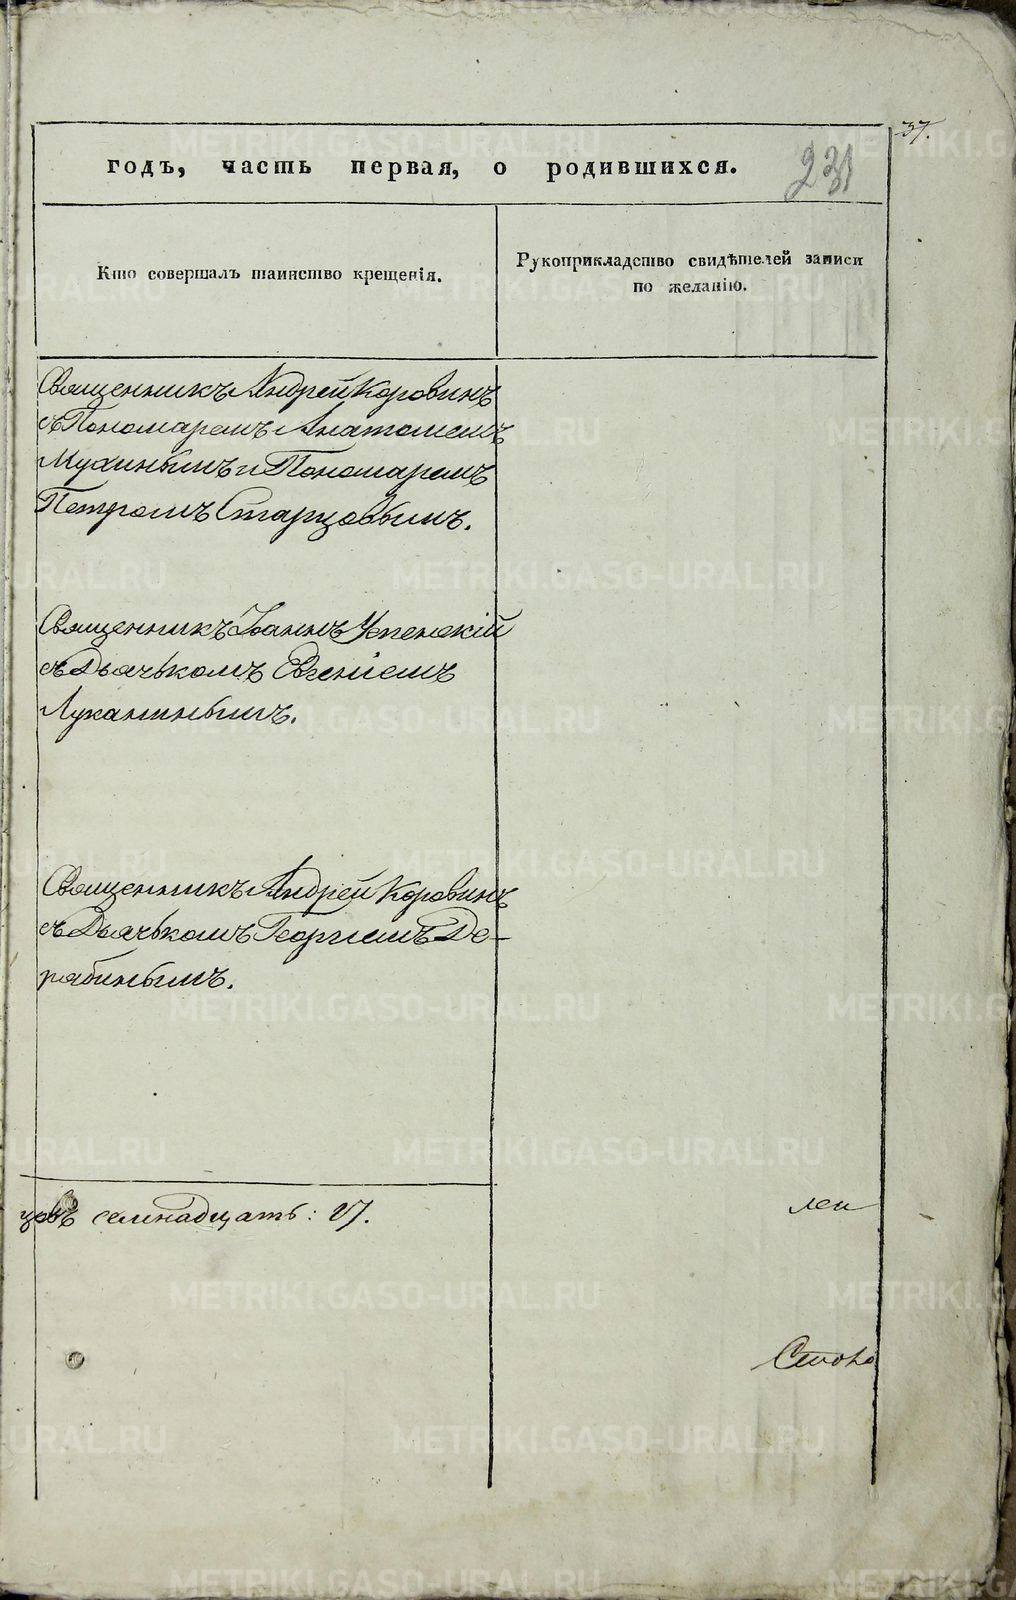 37.
годъ, часть первая, о родившихся.
231
Кто совершалъ таинство крещенія.
Рукоприкладство свидѣтелей записи
по желанію.
Священникъ Андрей Коровинъ
съ Пономаремъ Анатолiемъ
Мухинымъ и Пономаремъ
Петромъ Старцовымъ.
Священникъ Іоаннъ Успенскій
съ Дьячькомъ Евгеніемъ
Луканинымъ.
Священникъ Андрей Коровинъ
съ Дьячькомъ Георгіемъ Де-
рябинымъ.
цовъ семнадцать: 17.
METRIKI.GASO-URAL.RU